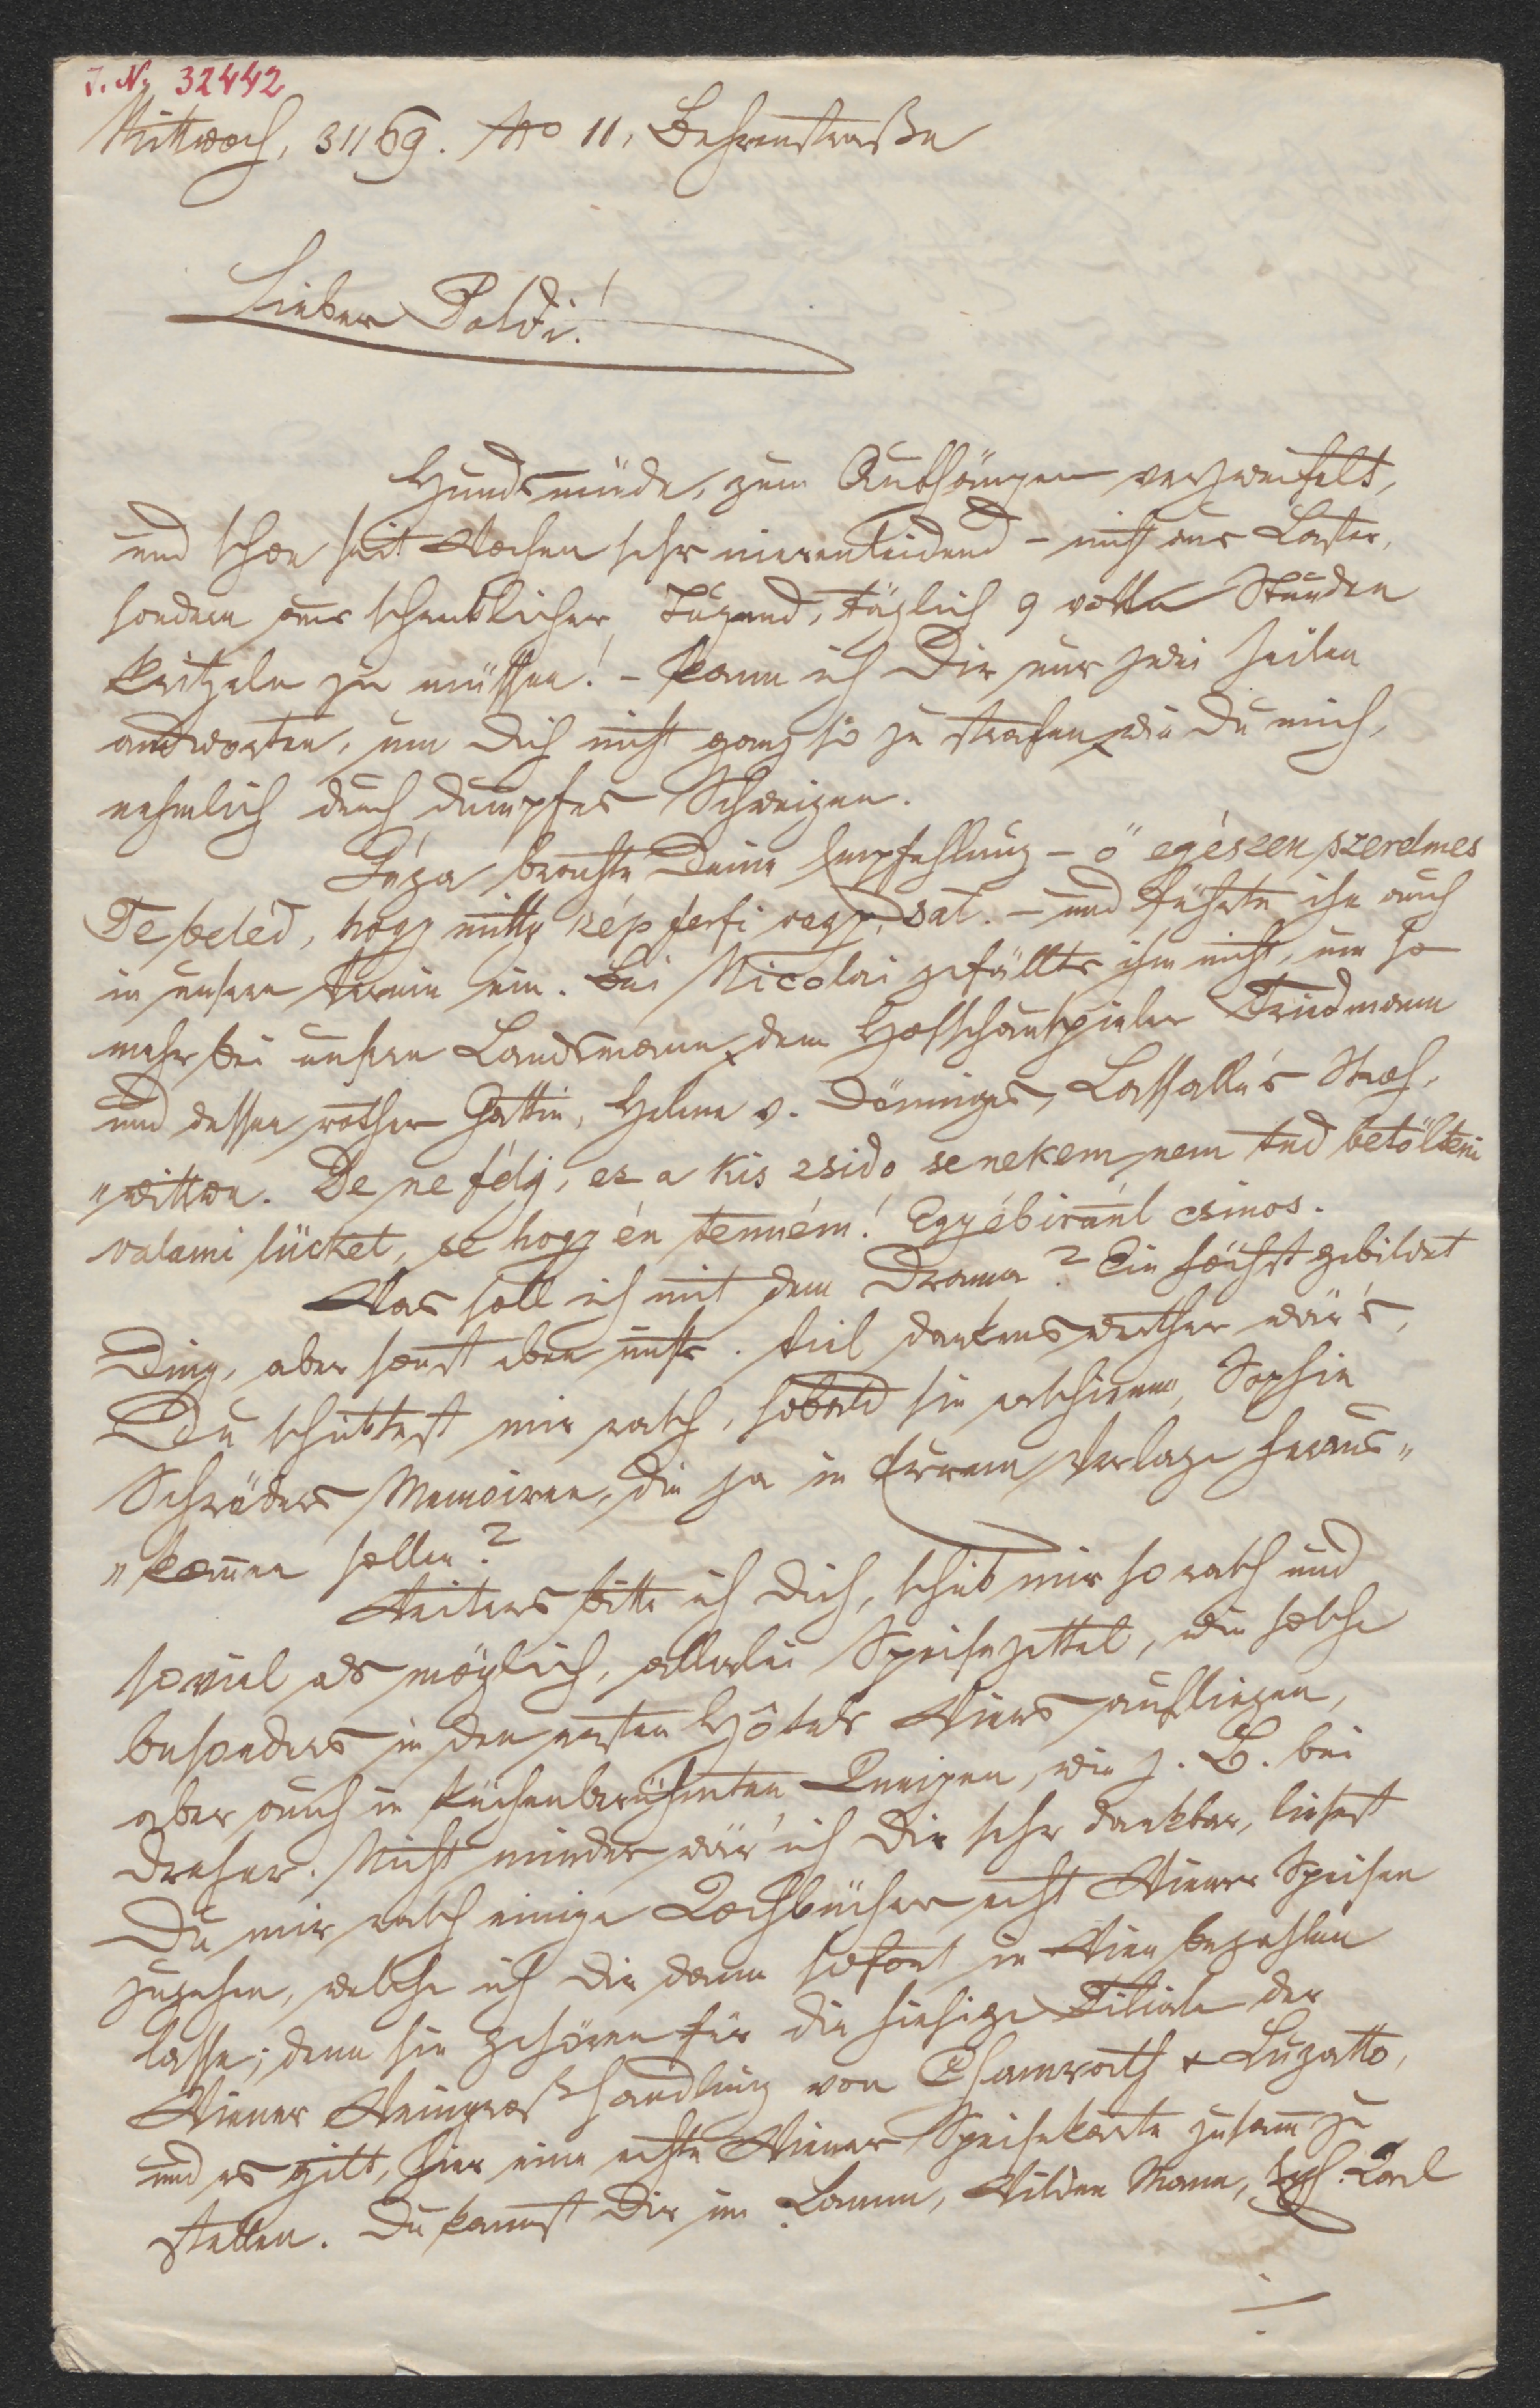 J. N. 32442
Mittwoch, 3/1169. No 11, Behrenstraße
Lieber Poldi!
Hundsmüde, zum Aufhängen verzweifelt,
und schon seit Wochen sehr nierenleidend – nicht aus Laster,
sondern aus scheußlicher Tugend, täglich 9 volle Stunden
kritzeln zu müssen! – kann ich Dir nur zwei Zeilen
antworten, um Dich nicht ganz so zu strafen, wie Du mich,
nehmlich durch dumpfes Schweigen.
Géza brachte Deine Empfehlung – ő egészen szerelmes
Te beléd, hogy milly szép ferfi vagy, sat. – und führte ihn auch
in unsern Verein ein. Bei Nicolai gefällts ihm nicht, um so
mehr bei unsern Landsmann, dem Hofschauspieler Friedmann
und dessen rother Gattin, Helene v. Dönniges, Lassalle's Stroh-
"wittwe. De ne félj, ez a kis zsido se nekem nem tud betölteni
valami lücket, se hogy én tenném! Egyébiránt csinos.
Was soll ich mit dem Drama? Ein höchst gebildet
Ding, aber sonst eben nichts. Viel dankenswerther wär's,
Du schicktest mir rasch, sobald sie erschienen, Sophie
Schröders Memoiren, die ja in Eurem Verlage heraus-
"kom̅en sollen?
Weiters bitte ich Dich, schick mir so rasch und
so viel als möglich, allerlei Speisezettel, wie solche
besonders in den ersten Hôtels Wiens aufliegen,
aber auch in küchenberühmten Kneipen, wie z. B. bei
Dreher. Nicht minder wär' ich Dir sehr dankbar, ließest
Du mir rasch einige Kochbücher echt Wiener Speisen
zugehen, welche ich Dir dann sofort in Wien bezahlen
lasse; denn sie gehören für die hiesige Filiale der
Wiener Weingroßhandlung von Chamrath & Luzatto,
und es gilt, hier eine echte Wiener Speisekarte zusam̅ zu
stellen. Du kannst Dir im Lamm, Wilden Mann, Erzh. Carl
./.